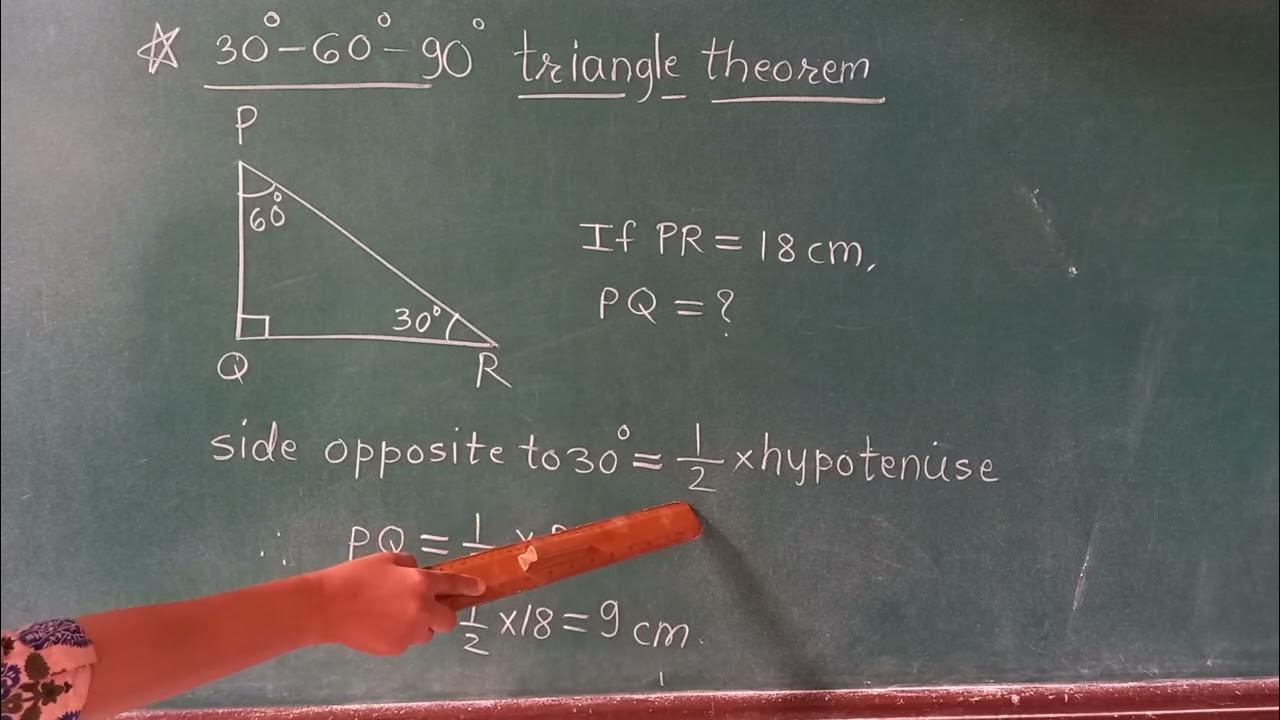 ☆ 30°-60°-90° triangle theorem
P
60°
If PR = 18 cm,
PQ = ?
30°
Q
R
side opposite to 30° = 1/2 × hypotenuse
∴ PQ = 1/ ×
1/2 × 18 = 9 cm.